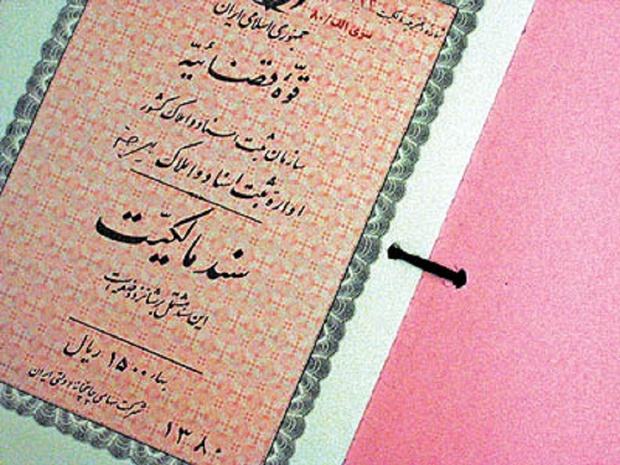 سری الف/۸۰
جمهوری اسلامی ایران
قوّهٔ قضائیّه
سازمان ثبت اسناد و املاک کشور
اداره ثبت اسناد و املاک
سند مالکیّت
این سند مشتمل بر شانزده صفحه است
بهاء ۱۵۰۰ ریال
شرکت سهامی چاپخانه دولتی ایران
۱۳۸۰